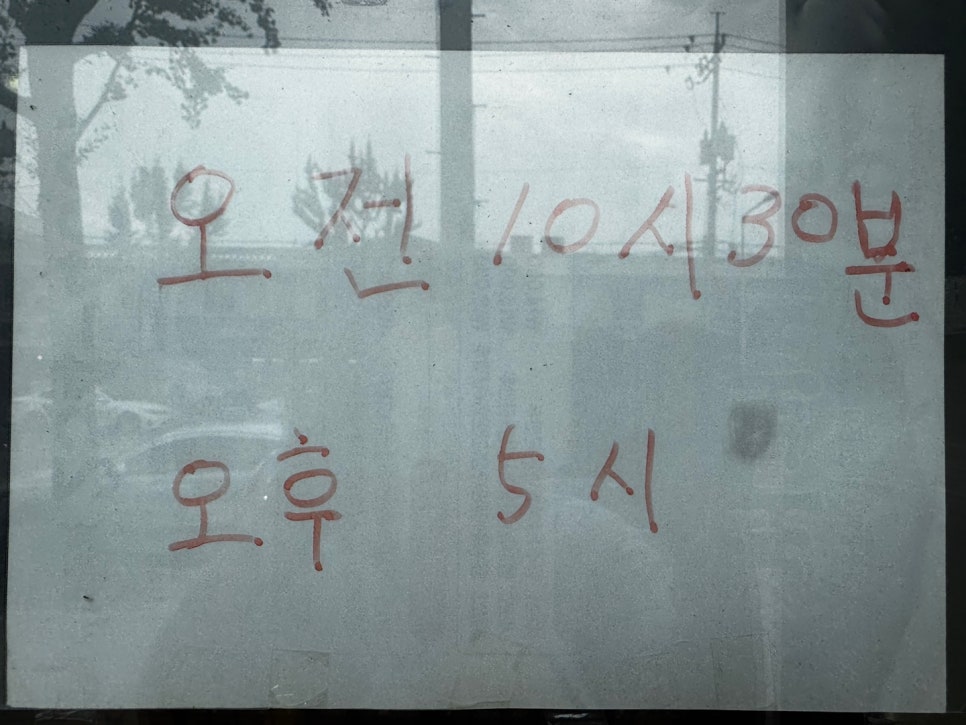 오전 10시30분
오후 5시